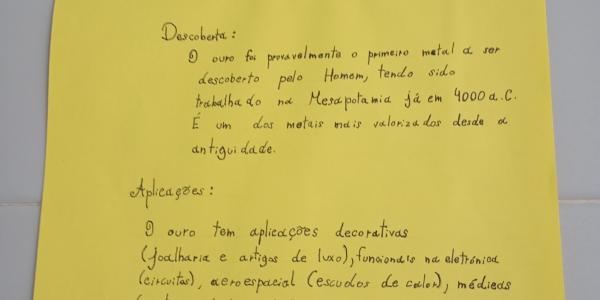 Descoberta:
O ouro foi provavelmente o primeiro metal a ser
descoberto pelo Homem, tendo sido
trabalhado na Mesopotamia já em 4000 a.C.
É um dos metais mais valorizados desde a
antiguidade.
Aplicações:
O ouro tem aplicações decorativas
(joalharia e artigos de luxo), funcionais na eletrónica
(circuitos), aeroespacial (escudos de calor), médicas